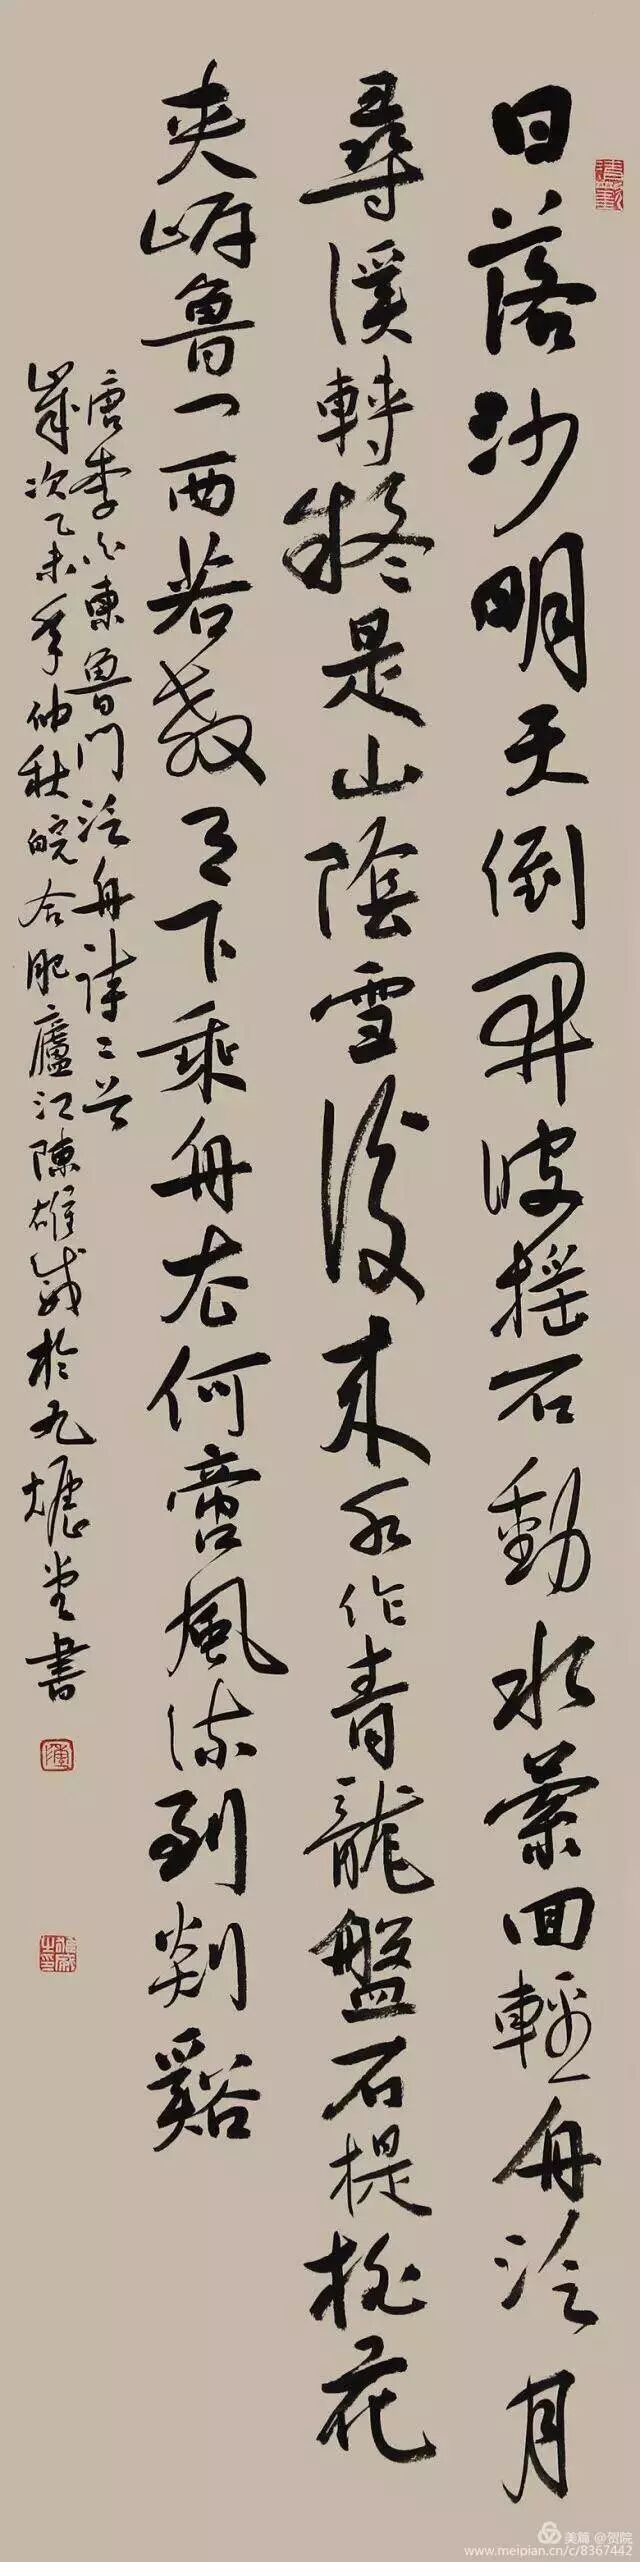 日落沙明天倒開波搖石動水縈回輕舟泛月
尋溪轉疑是山陰雪後來水作青龍盤石堤桃花
夾岸魯門西若教月下乘舟去何啻風流到剡谿
唐李白東魯門泛舟詩二首
歲次乙未年仲秋皖合肥廬江陳雄威於九堂書
美篇 @贺院
www.meipian.cn/c/8367442